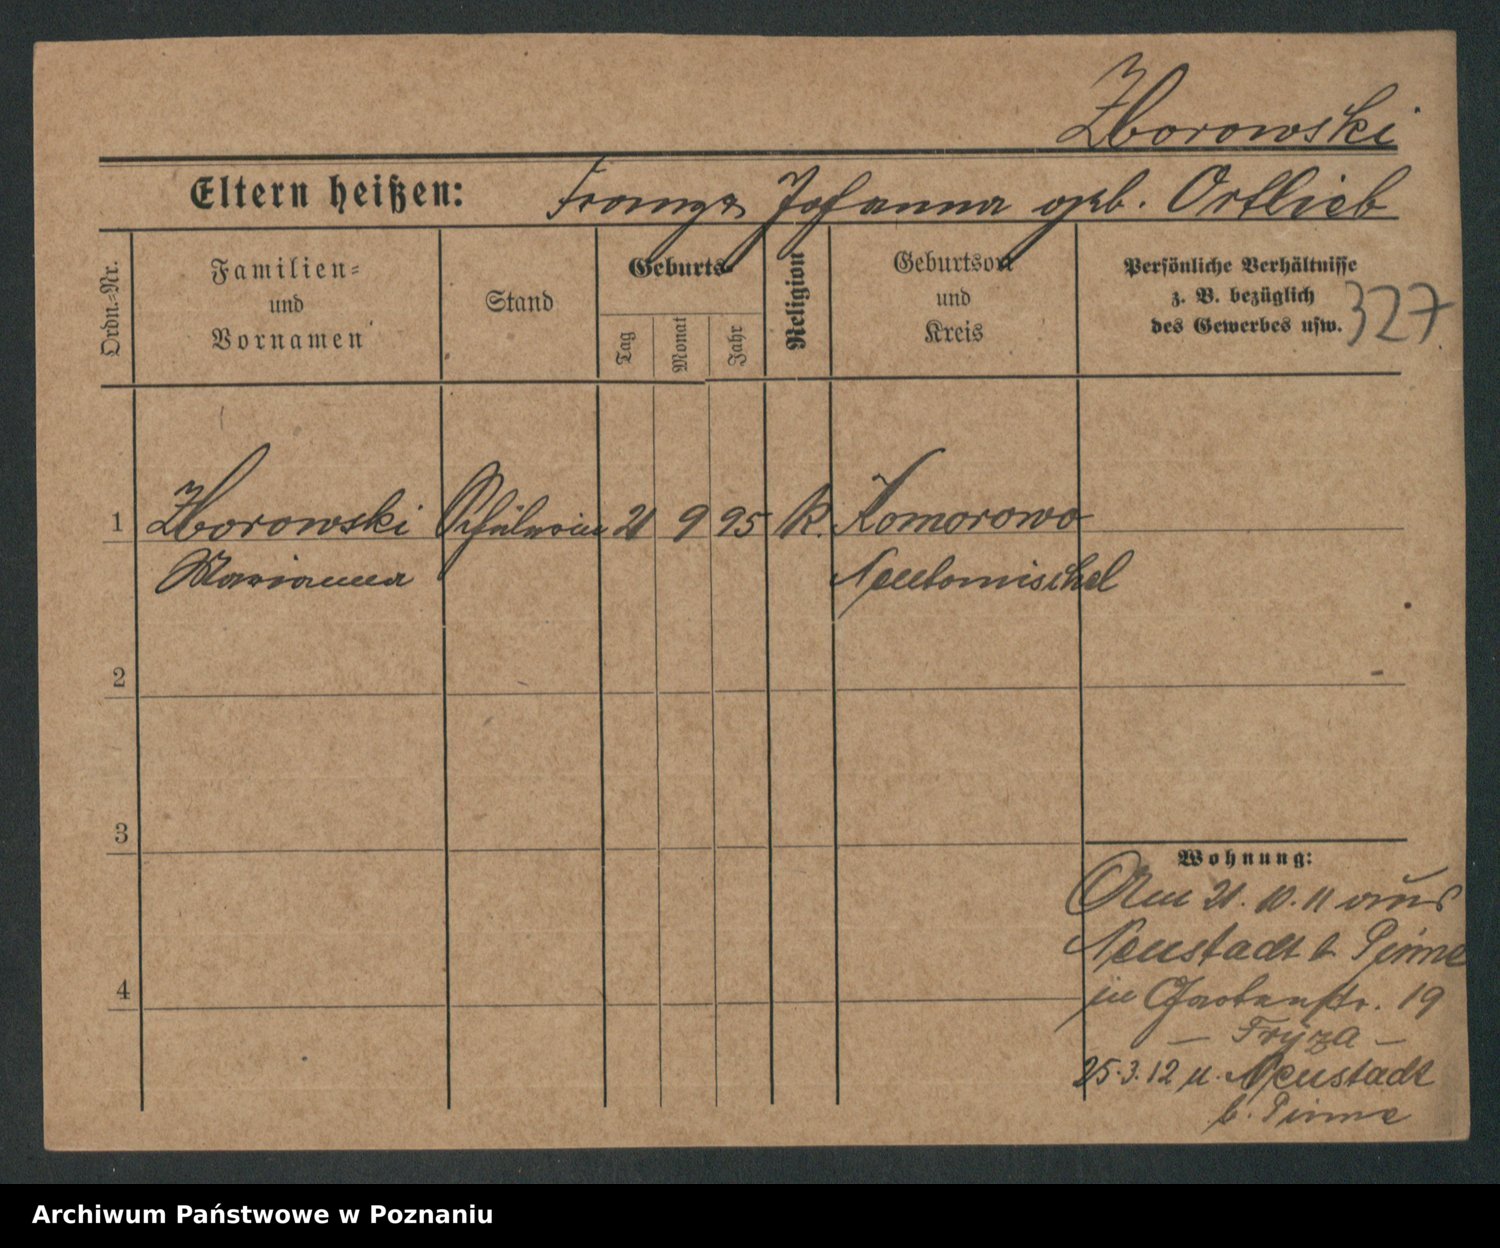 Zborowski
Eltern heißen: Franz Johanna geb. Ortlieb
Ordn.-Nr.
Familien-
und
Vornamen
Stand
Geburts-
Tag
Monat
Jahr
Religion
Geburtsort
und
Kreis
Persönliche Verhältnisse
z. B. bezüglich
des Gewerbes usw.
327
1 Zborowski Schülerin 21 9 95 k. Komorowo
Marianna Neutomischel
2
3
4
Wohnung:
Am 21.10.11 aus
Neustadt b Pinne
in Gartenstr. 19
- Fryza -
25.3.12 n. Neustadt
b. Pinne
Archiwum Państwowe w Poznaniu